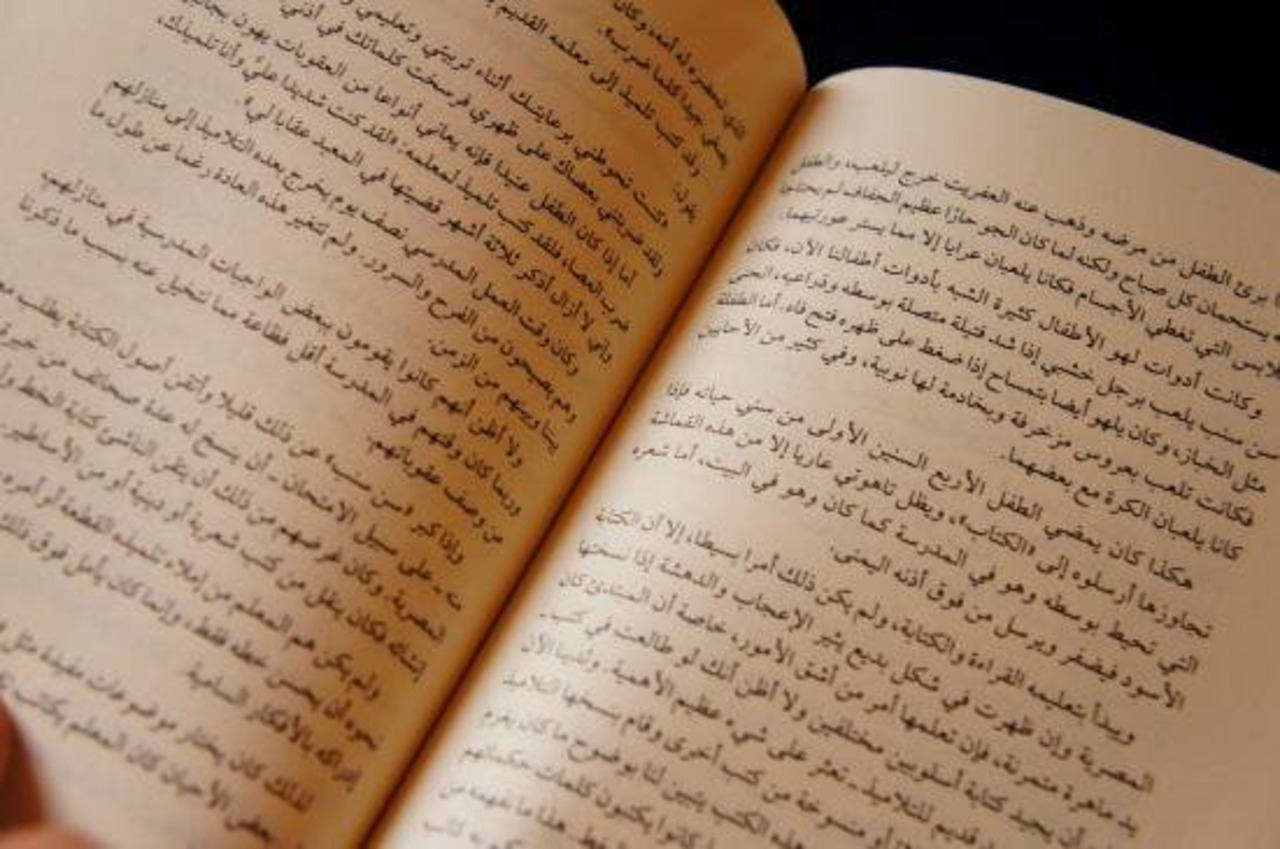 برئ الطفل من مرضه وذهب عنه العفريت خرج ليلعب، والطفل
يستحمان كل صباح ولكنه لما كان الجو حارًا عظيم الجفاف لم يحتاجا
التي تغطي الأجسام فكانا يلعبان عرايا إلا مما يستر عورتيهما.
وكانت أدوات لهو الأطفال كثيرة الشبه بأدوات أطفالنا الآن، فكان
سن سنب يلعب برجل خشبي إذا شد فتيلة متصلة بوسطه وذراعيه، انحنى
مثل الخباز، وكان يلهو أيضا بتمساح إذا ضغط على ظهره فتح فاه. أما الطفلة
فكانت تلعب بعروس مزخرفة وبخادمة لها نوبية، وفي كثير من الأحايين
كانا يلعبان الكرة مع بعضهما.
هكذا كان يمضي الطفل الأربع السنين الأولى من سني حياته فإذا
تجاوزها أرسلوه إلى «الكتاب»، ويظل تاهوتي عاريا إلا من هذه القماشة
التي تحيط بوسطه وهو في المدرسة كما كان وهو في البيت، أما شعره
الأسود فيضفر ويرسل من فوق أذنه اليمنى.
ويبدأ بتعليمه القراءة والكتابة، ولم يكن ذلك أمرا بسيطا، إلا أن الكتابة
المصرية وإن ظهرت في شكل بديع يثير الإعجاب والدهشة إذا نسختها
يد ماهرة متمرنة، فإن تعلمها أمر من أشق الأمور، خاصة أن المبتدئ كان
أن يجيد كتابة أسلوبين مختلفين ولا أظن أنك لو طالعت في كتب
قديم للتلاميذ - تعثر على شيء عظيم الأهمية. ولدينا الآن
أو منسوخة من كتب أخرى وقام بنسخها التلاميذ
هذه الكتب يتبين لنا بوضوح ما كان يغرم
كانوا يكتبون كلمات حكمائهم
هذا ما نفهمه من
كاتب
الذي تحضره له أمه، وكان
يصغي جيدا كلما ضرب».
وقد كتب تلميذ إلى معلمه القديم
يقول:
«كنت تحوطني برعايتك أثناء تربيتي وتعليمي
ولقد ضربتني بعصاك على ظهري فرسخت كلماتك في أذني».
أما إذا كان الطفل عنيدا فإنه يعاني أنواعا من العقوبات يهون بجانبها
ضرب العصا، فلقد كتب تلميذ لمعلمه: «لقد كنت شديدا علي وأنا تلميذك،
وأني لا أزال أذكر ثلاثة أشهر قضيتها في المعبد عقابا لي».
وكان وقت العمل المدرسي نصف يوم يخرج بعده التلاميذ إلى منازلهم
وهم يصيحون من الفرح والسرور. ولم تتغير هذه العادة رغما عن طول ما
بيننا وبينهم من الزمن.
ولا أظن أنهم كانوا يقومون ببعض الواجبات المدرسية في منازلهم
وربما كان وقتهم في المدرسة أقل فظاعة مما نتخيل عنه بسبب ما ذكرنا
من وصف عقوباتهم.
وإذا كبر «سن سنب» عن ذلك قليلا وأتقن أصول الكتابة يطلب
منه - على سبيل الامتحان - أن ينسخ له عدة صحائف من
المصرية، وكان غرضهم من ذلك أن يتقن الناشئ كتابة الخط
إنشاء، فكان ينقل من كتب شعرية أو دينية أو من الأساطير
ولم يكن هم المعلم من إملاء تلميذه القطعة أو أمره
نحوه أن يحسن خطه فقط، وإنما كان يأمل فوق ذلك
إدراكه بالأفكار السامية.
لذلك كان يختار موضوعات مفيدة مثل
بعض الأحيان كان المعلم يكاتب